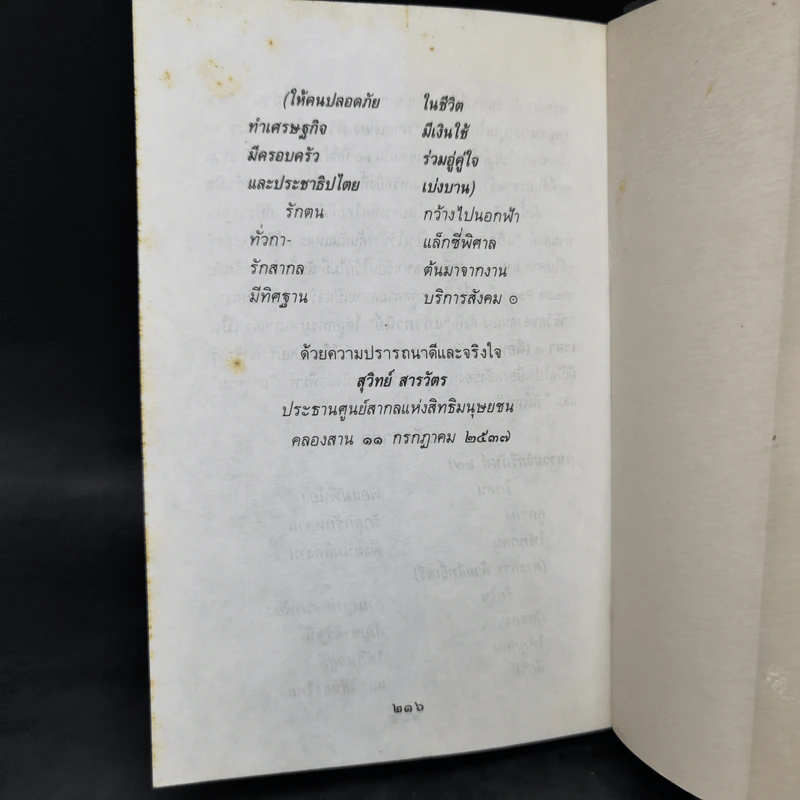 (ให้คนปลอดภัย ในชีวิต
ทำเศรษฐกิจ มีเงินใช้
มีครอบครัว ร่วมอู่คู่ใจ
และประชาธิปไตย เบ่งบาน)
รักตน กว้างไปนอกฟ้า
ทั่วกา- แล็กซี่พิศาล
รักสากล ต้นมาจากงาน
มีทิศฐาน บริการสังคม ๐
ด้วยความปรารถนาดีและจริงใจ
สุวิทย์ สารวัตร
ประธานศูนย์สากลแห่งสิทธิมนุษยชน
คลองสาน ๑๑ กรกฎาคม ๒๕๓๗
๒๑๖